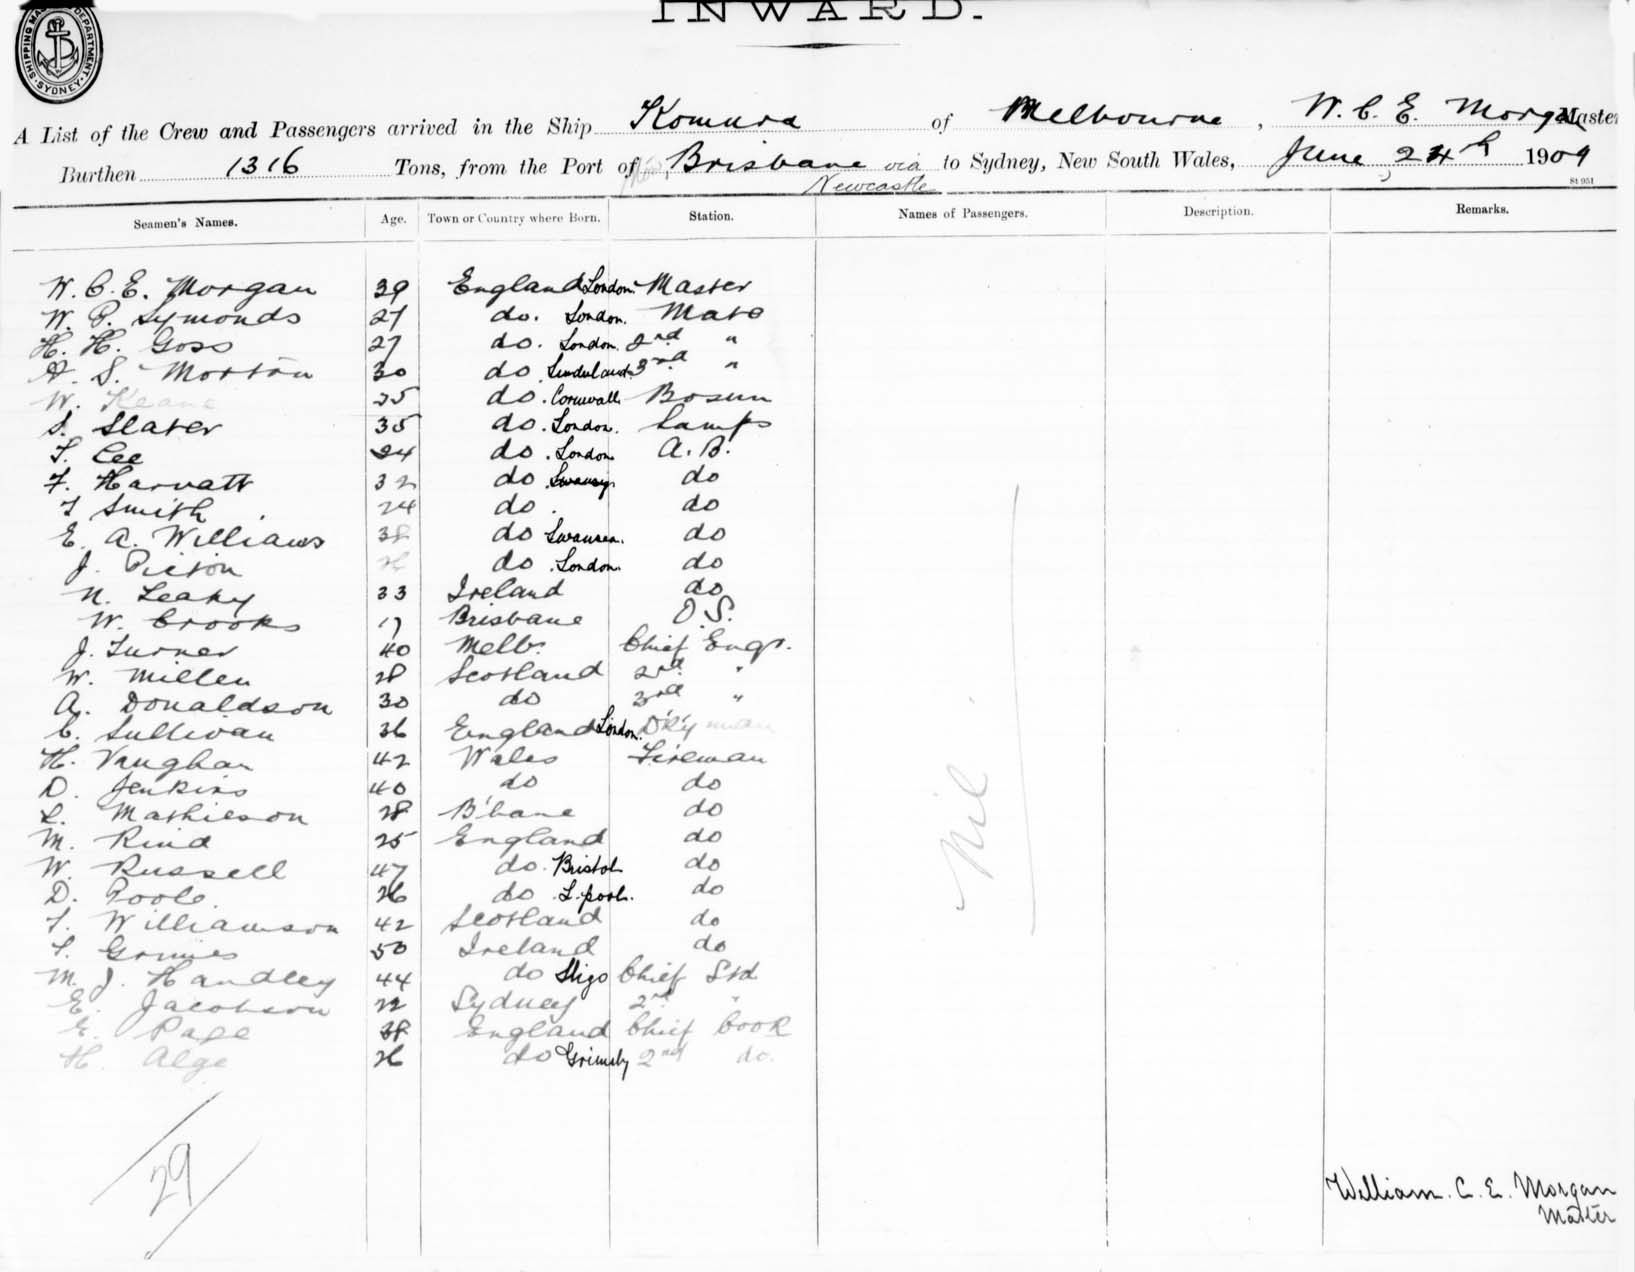 SHIPPING MASTER'S DEPARTMENT. SYDNEY
INWARD.
A List of the Crew and Passengers arrived in the Ship Komura of Melbourne, W. C. E. Morgan Master
Burthen 1316 Tons, from the Port of Brisbane via Newcastle to Sydney, New South Wales, June 24th 1909
St 951
Seamen's Names. Age. Town or Country where Born. Station. Names of Passengers. Description. Remarks.
W. C. E. Morgan 39 England London. Master
W. P. Symonds 27 do. London. Mate
H. H. Goss 27 do. London. 2nd "
A. S. Morton 30 do 3rd "
W. Keane 25 do. Cornwall Bosun
S. Slater 35 do. London. Lamps
T. Lee 24 do. London A. B.
F. Harvatt 32 do do
T Smith 24 do. do
E. A. Williams 38 do Swansea. do
J. Picton 26 do. London. do
N. Leahy 33 Ireland do
W. Crooks 17 Brisbane O.S.
J. Turner 40 Melb. Chief Engr.
W. Millen 28 Scotland 2nd "
A. Donaldson 30 do 3rd "
C. Sullivan 36 England London. D'k'yman
H. Vaughan 42 Wales Fireman
D. Jenkins 40 do do
L. Mathieson 28 B'bane do
M. Rind 25 England do
W. Russell 47 do. Bristol do
D. Poole. 26 do L.pool. do
T. Williamson 42 Scotland do
T. Grimes 50 Ireland do
M. J. Handley 44 do Sligo Chief Std
E. Jacobson 22 Sydney 2nd "
E. Page 38 England Chief Cook
H. Alge 26 do Grimsby 2nd do.
Nil
29
William. C. E. Morgan
Master